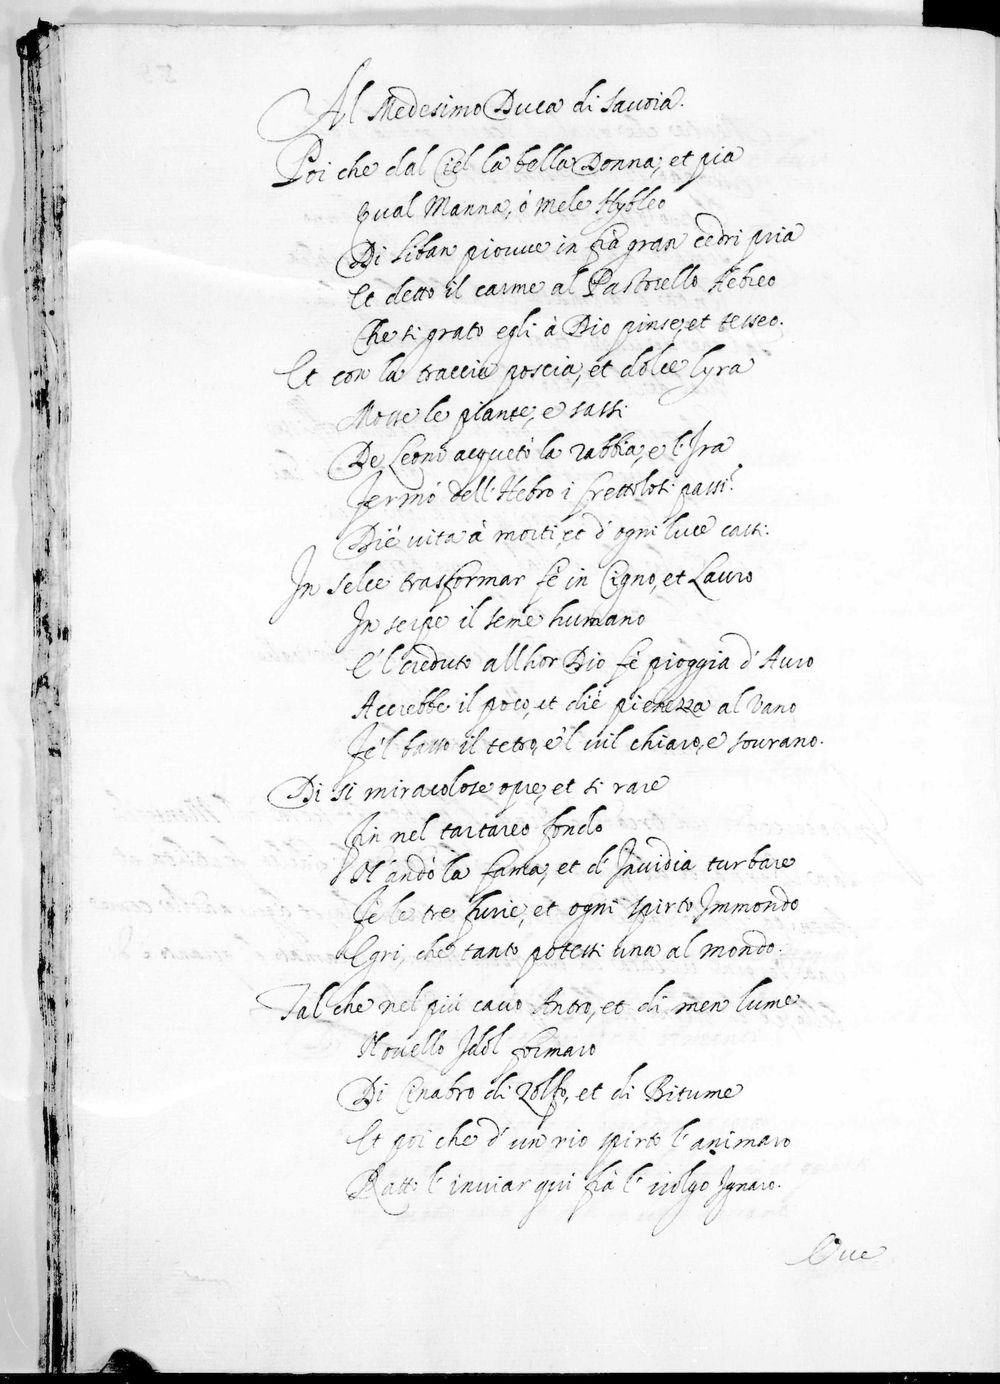 Al Medesimo Duca di Sauoia.
Poi che dal Ciel la bella Donna, et pia
Qual Manna, ò mele Hybleo
Di Liban piouue in frà gran cedri pria
Et detto il carme al Pastorello Hebreo
Che si grato egli à Dio pinse, et tesseo.
Et con la traccia poscia, et dolce lyra
Mosse le piante, e sassi
De Leoni acquetò la rabbia, e l'Ira
Fermò dell'Hebro i frettolosi passi
Diè uita à morti, et d'ogni luce cassi.
In selce trasformar fè in Cigno, et Lauro
In serpe il seme humano
E'l creduto allhor Dio fè pioggia d'Auro
Accrebbe il poco, et diè pienezza al Vano
Fè'l basso il tetro, e'l uil chiaro, e sourano.
Di si miracolose opre, et si rare
Fin nel tartareo fondo
N'andò la fama, et d'Inuidia turbare
Fè le tre furie, et ogni spirto Immondo
Egri, che tanto potessi una al mondo.
Tal che nel più cauo Antro, et di men lume
Nouello Idol formaro
Di Cinabro di zolfo, et di Bitume
Et poi che d'un rio spirto l'animaro
Ratto l'inuiar qui frà l'uolgo Ignaro.
Oue